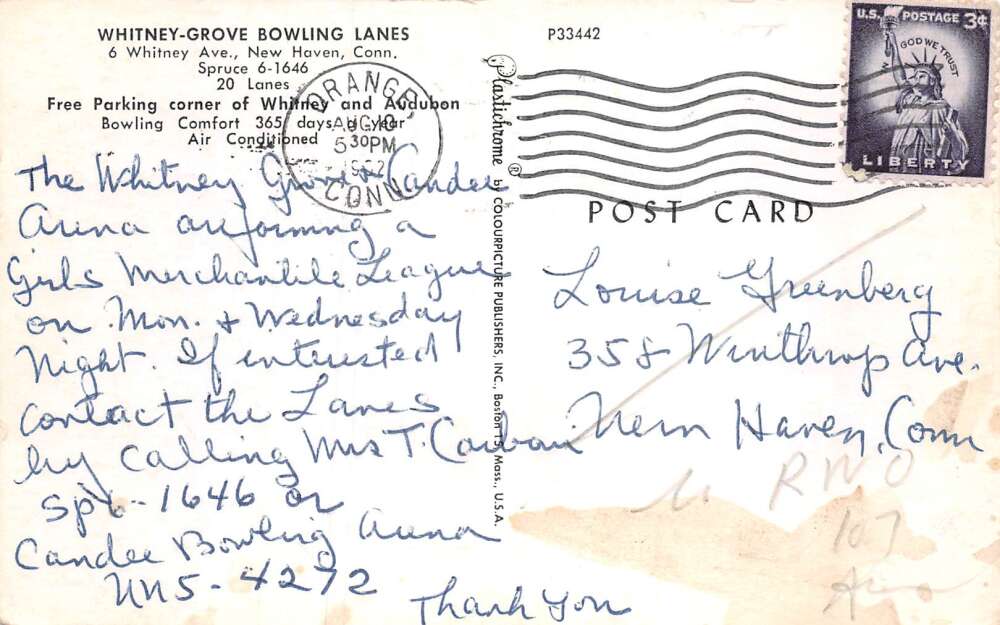 WHITNEY-GROVE BOWLING LANES
6 Whitney Ave., New Haven, Conn.
Spruce 6-1646
20 Lanes
Free Parking corner of Whitney and Audubon
Bowling Comfort 365 days a year
Air Conditioned
P33442
U.S. POSTAGE 3¢
IN GOD WE TRUST
LIBERTY
ORANGE,
AUG 10
5 30PM
1962
CONN.
Plastichrome ® by COLOURPICTURE PUBLISHERS, INC., Boston 15, Mass., U.S.A.
POST CARD
The Whitney Grove & Candee
Arena are forming a
Girls Merchantile League
on Mon. & Wednesday
Night. If interested
contact the Lanes
by calling Mrs T.
Sp6-1646 or
Candee Bowling Arena
UN5-4272
Thank You
Louise Greenberg
358 Winthrop Ave.
New Haven, Conn
RWO
107